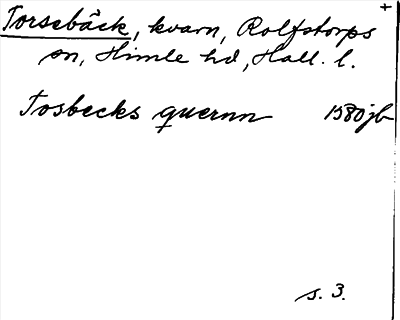 Torsebäck, kvarn, Rolfstorps +
sn, Himle hd, Hall. l.
Tosbecks quernn 1580 jb
s. 3.